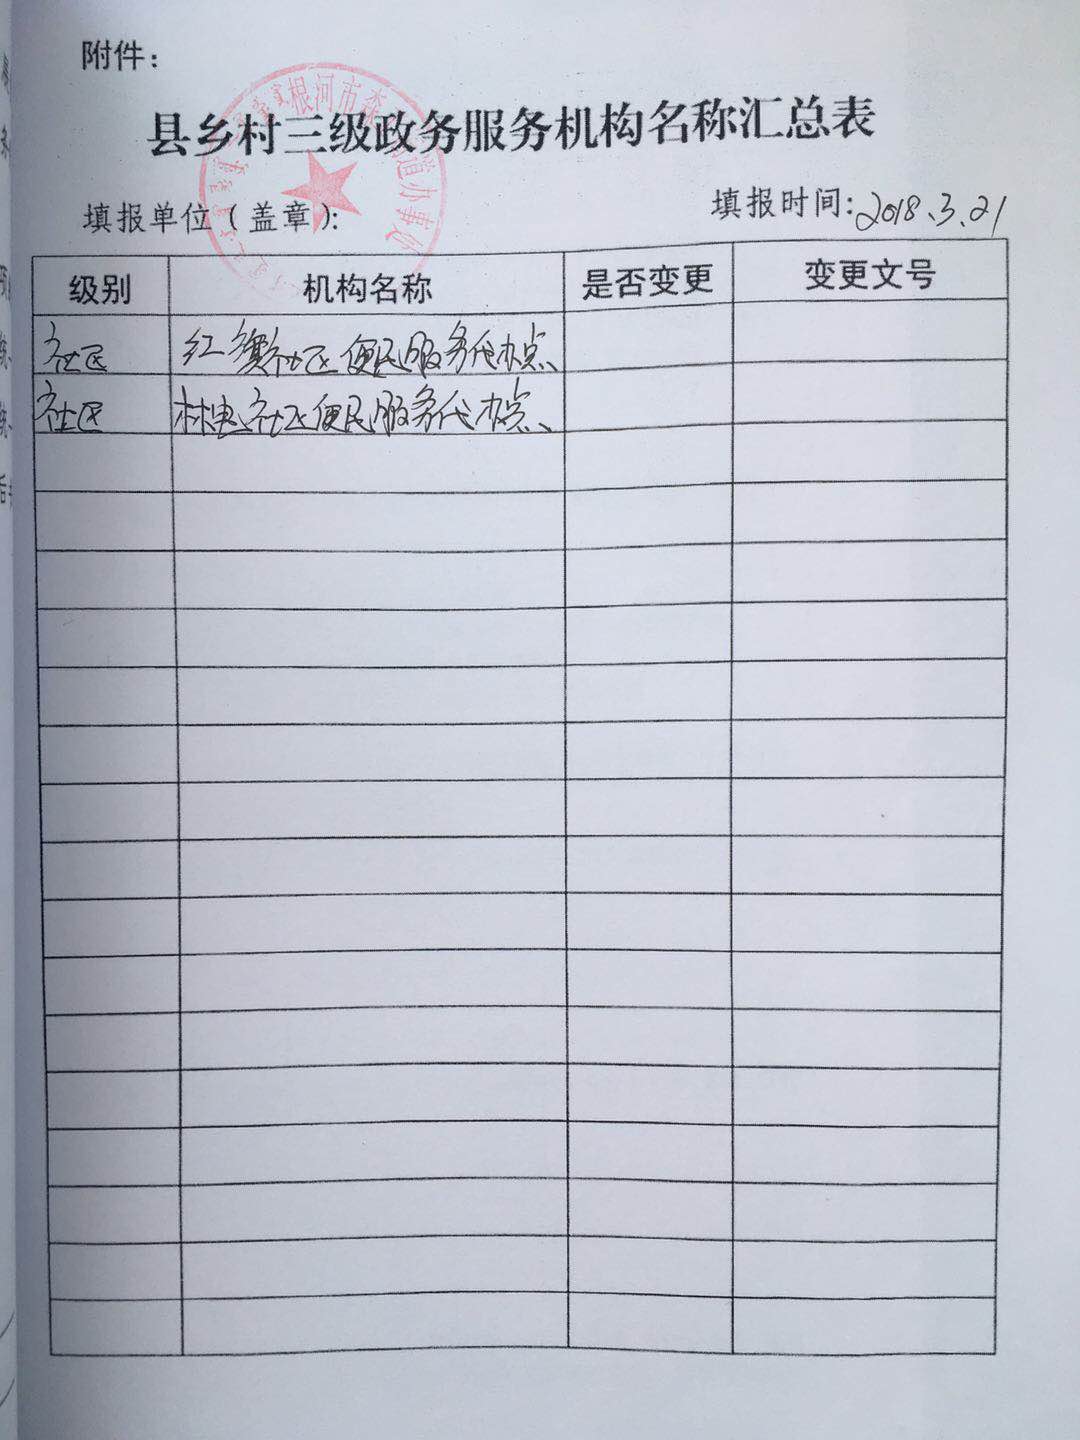 附件：
县乡村三级政务服务机构名称汇总表
根河市森 街道办事处
填报单位（盖章）： 填报时间：2018.3.21
级别 机构名称 是否变更 变更文号
社区 红 社区便民服务代办点
社区 林 社区便民服务代办点